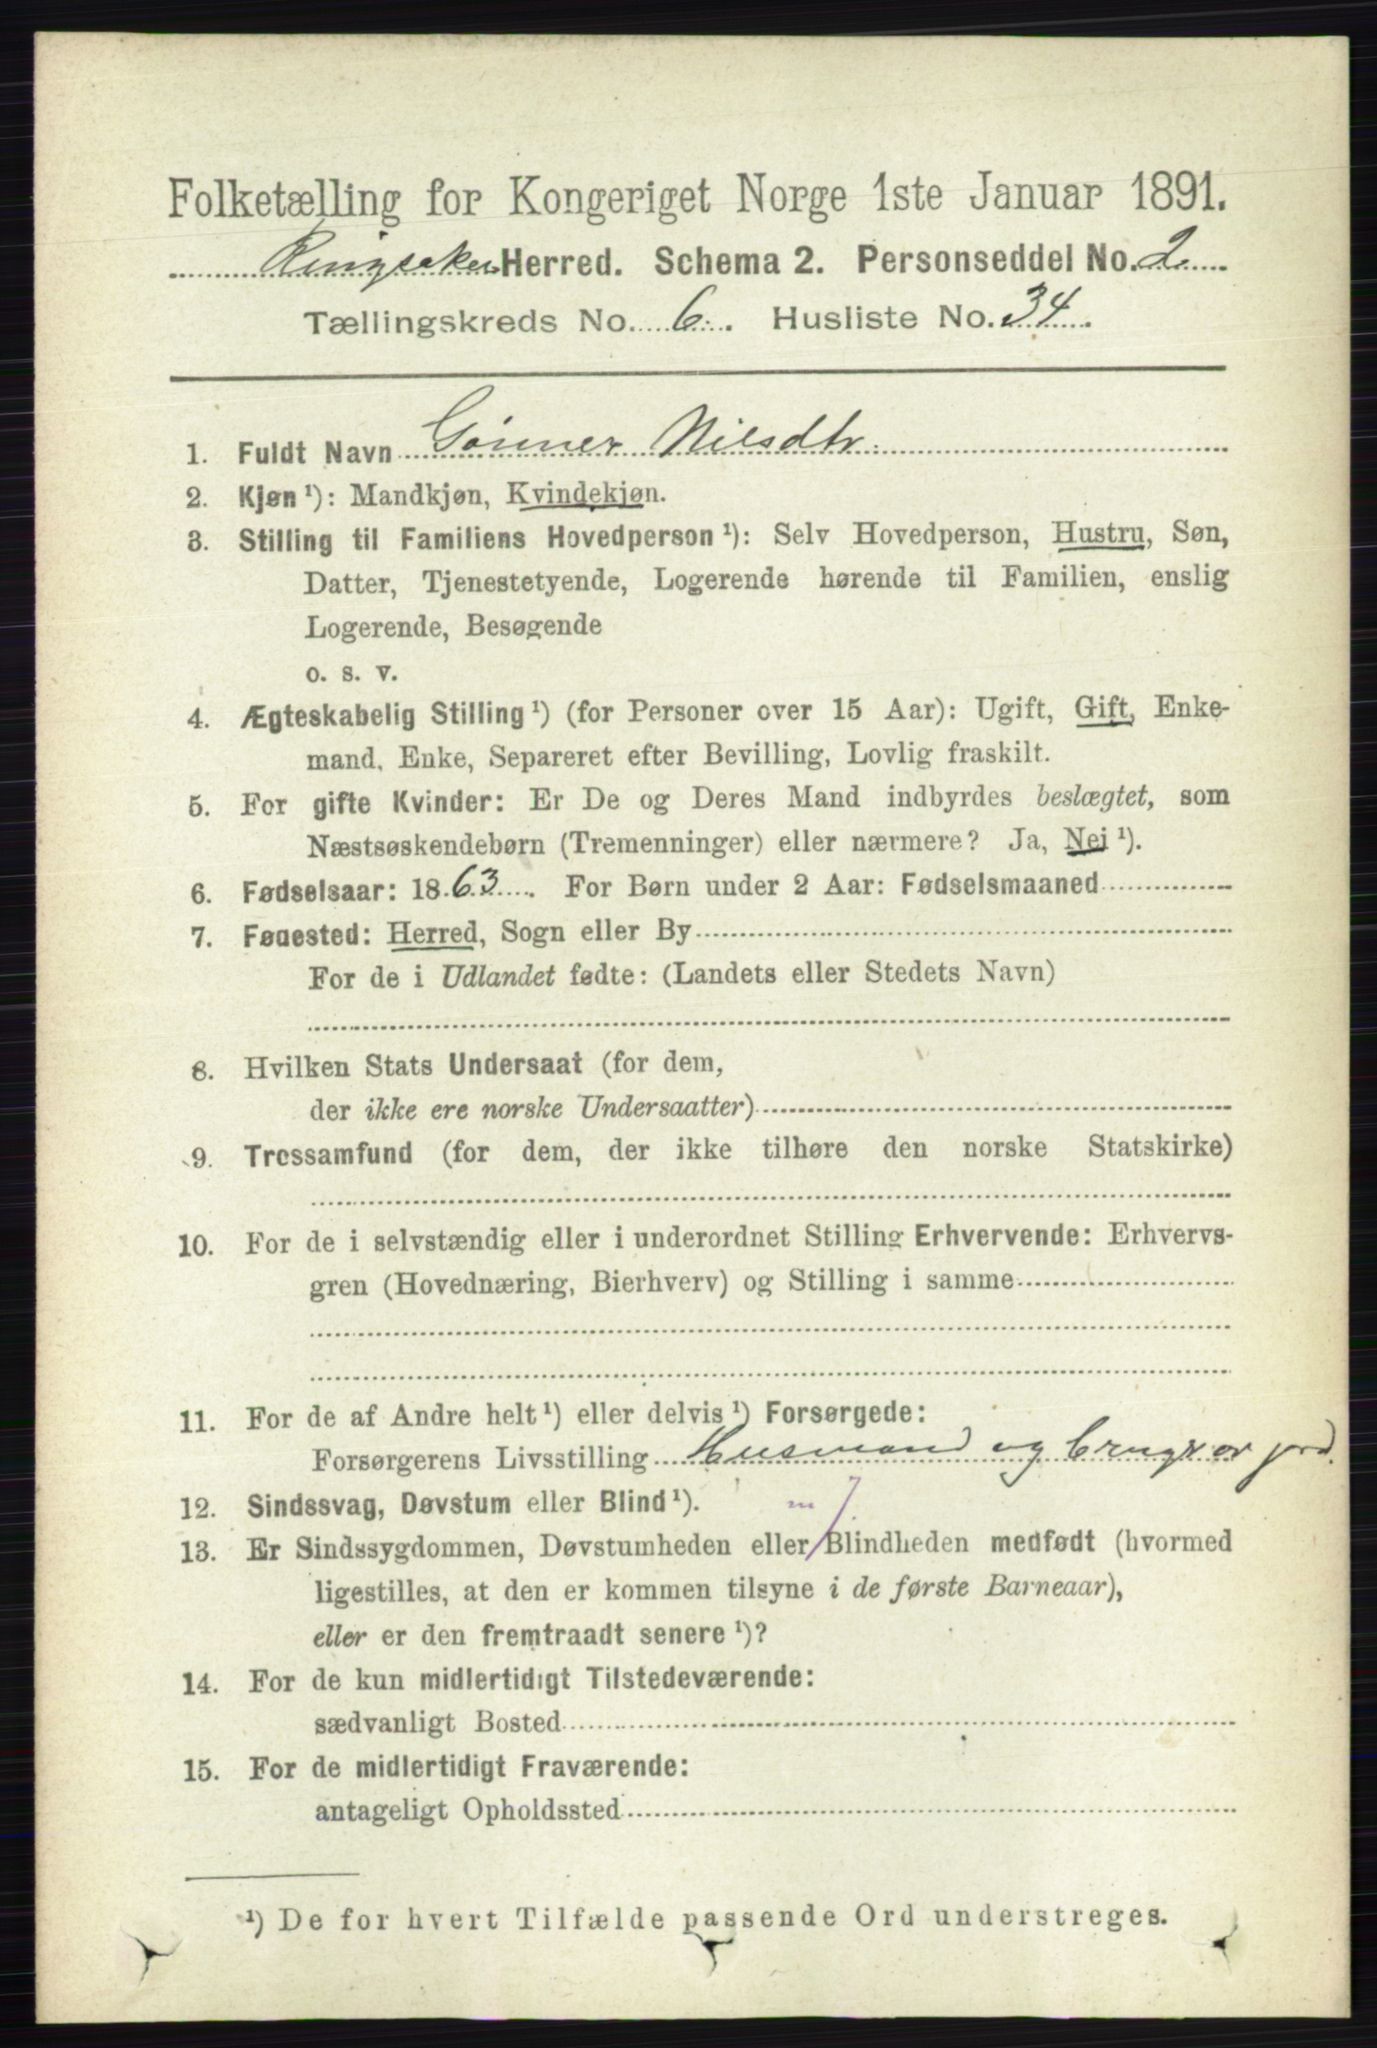 Folketælling for Kongeriget Norge 1ste Januar 1891.
Ringsaker Herred. Schema 2. Personseddel No. 2
Tællingskreds No. 6. Husliste No. 34
1. Fuldt Navn Gønner Nilsdtr.
2. Kjøn ¹): Mandkjøn, Kvindekjøn.
3. Stilling til Familiens Hovedperson ¹): Selv Hovedperson, Hustru, Søn,
Datter, Tjenestetyende, Logerende hørende til Familien, enslig
Logerende, Besøgende
o. s. v.
4. Ægteskabelig Stilling ¹) (for Personer over 15 Aar): Ugift, Gift, Enke-
mand, Enke, Separeret efter Bevilling, Lovlig fraskilt.
5. For gifte Kvinder: Er De og Deres Mand indbyrdes beslægtet, som
Næstsøskendebørn (Tremenninger) eller nærmere? Ja, Nej ¹).
6. Fødselsaar: 1863. For Børn under 2 Aar: Fødselsmaaned
7. Fødested: Herred, Sogn eller By
For de i Udlandet fødte: (Landets eller Stedets Navn)
8. Hvilken Stats Undersaat (for dem,
der ikke ere norske Undersaatter)
9. Trossamfund (for dem, der ikke tilhøre den norske Statskirke)
10. For de i selvstændig eller i underordnet Stilling Erhvervende: Erhvervs-
gren (Hovednæring, Bierhverv) og Stilling i samme
11. For de af Andre helt ¹) eller delvis ¹) Forsørgede:
Forsørgerens Livsstilling Husmand og bruger jord.
12. Sindssvag, Døvstum eller Blind ¹).
13. Er Sindssygdommen, Døvstumheden eller Blindheden medfødt (hvormed
ligestilles, at den er kommen tilsyne i de første Barneaar),
eller er den fremtraadt senere ¹)?
14. For de kun midlertidigt Tilstedeværende:
sædvanligt Bosted
15. For de midlertidigt Fraværende:
antageligt Opholdssted
¹) De for hvert Tilfælde passende Ord understreges.